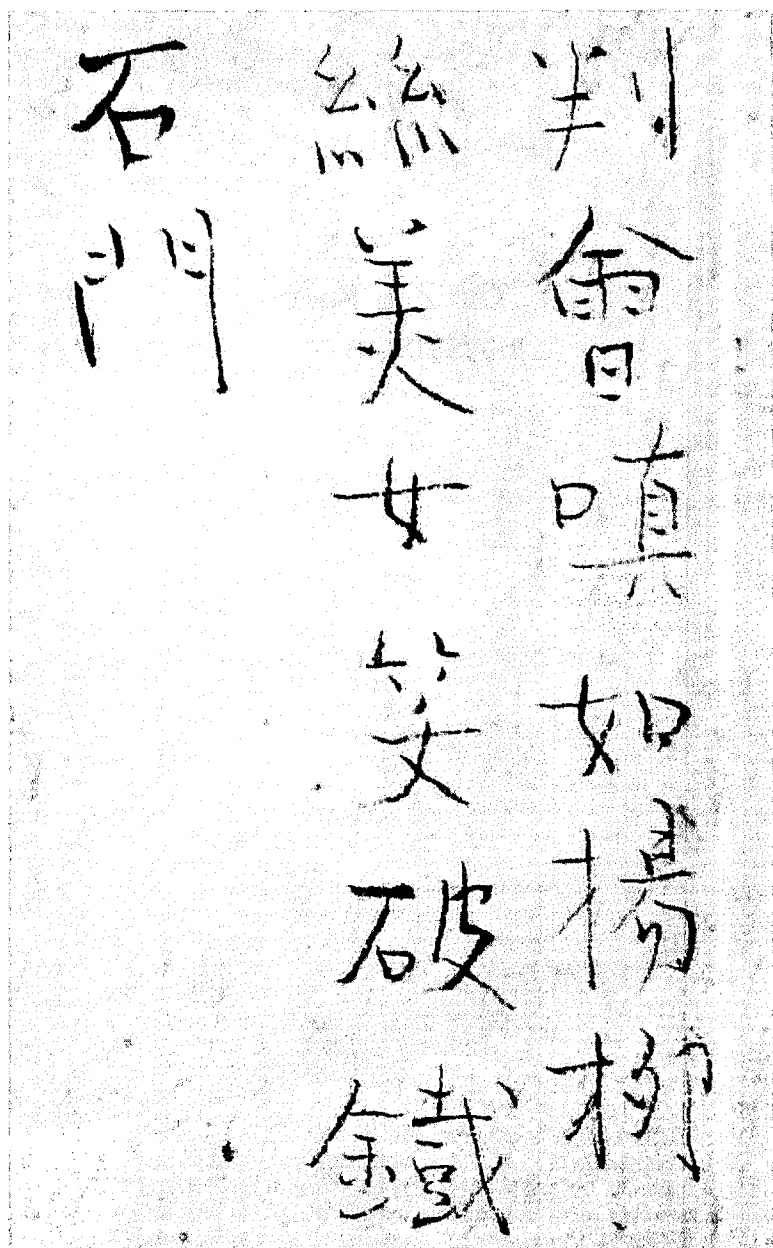 判會嗔如楊柳
絲美女笑破鐵
石門